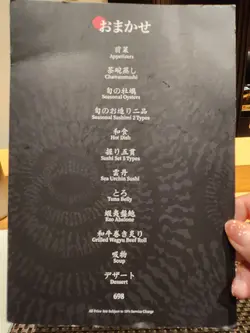 おまかせ
前菜
Appetizers
茶碗蒸し
Chawanmushi
旬の牡蠣
Seasonal Oysters
旬のお造り二品
Seasonal Sashimi 2 Types
和食
Hot Dish
握り五貫
Sushi Set 5 Types
雲丹
Sea Urchin Sushi
とろ
Tuna Belly
蝦夷鮑
Ezo Abalone
和牛巻き炙り
Grilled Wagyu Beef Roll
吸物
Soup
デザート
Dessert
698
All Price Are Subject to 10% Service Charge